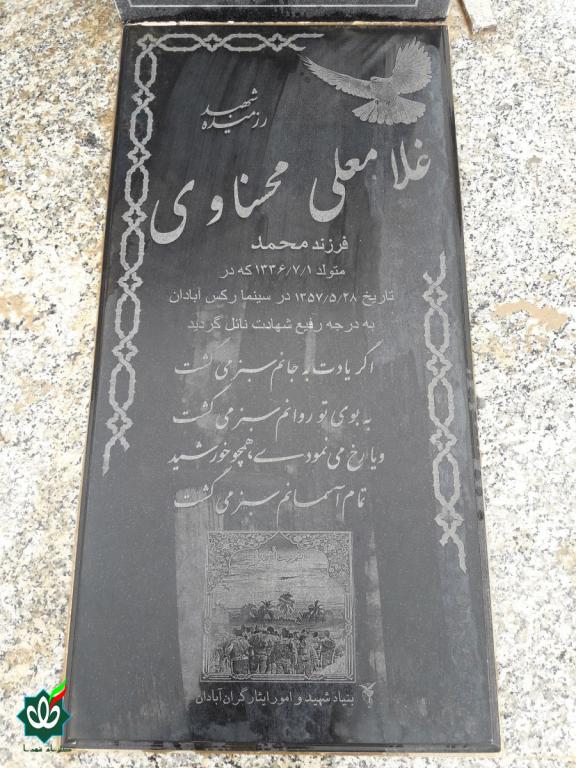 شهید
رزمنده
غلامعلی محسناوی
فرزند محمد
متولد ۱۳۳۶/۷/۱ که در
تاریخ ۱۳۵۷/۵/۲۸ در سینما رکس آبادان
به درجه رفیع شهادت نائل گردید
اگر یادت به جانم سبز می گشت
به بوی تو روانم سبز می گشت
و یا رخ می نمودے، همچو خورشید
تمام آسمانم سبز می گشت
بنیاد شهید و امور ایثارگران آبادان